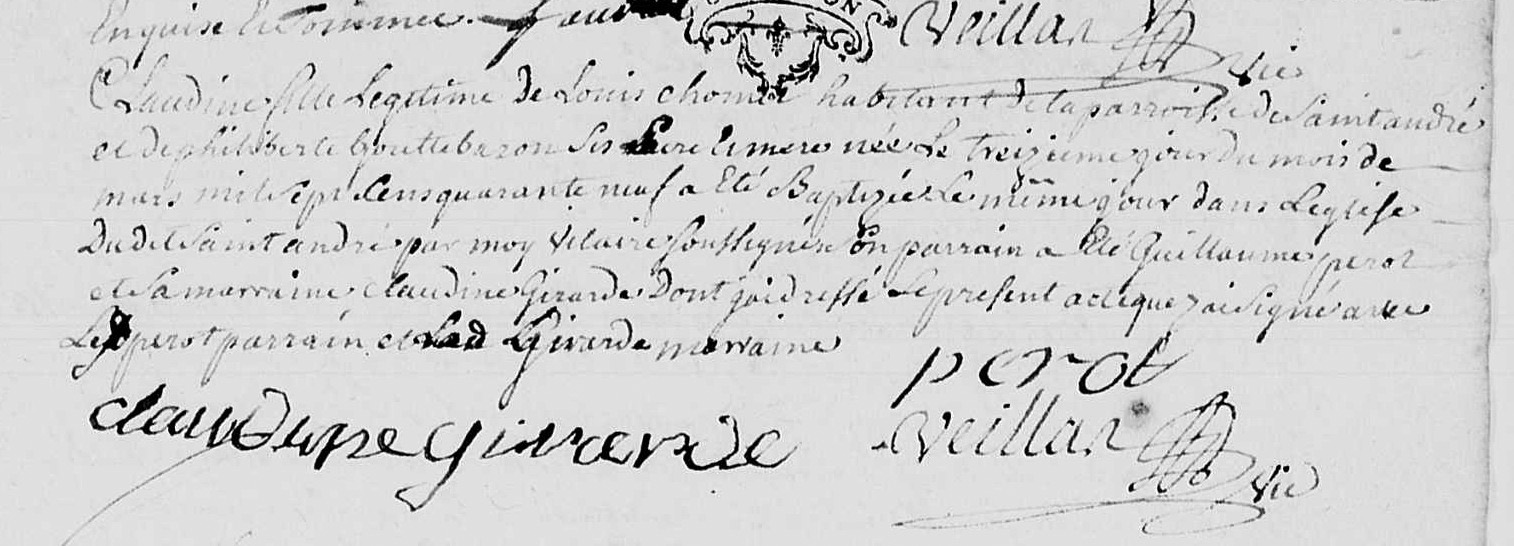 Enquise et sommée.
ON
Veillas vic
Claudine fille Legitime de Louis chomer habitant de la parroisse de Saint andré
et de philiberte gouttebaron ses pere et mere née Le treizieme jour du mois de
mars mil sept cens quarante neuf a Eté Baptizée Le même jour dans Leglise
Dudit Saint andré par moy Vicaire soussigné son parrain a Eté Guillaume perot
et Sa marraine claudine Girarde Dont jai dressé Le present acte que jai signé avec
Led perot parrain et Lad Girarde marraine
perot
claudine girarde Veillas vic